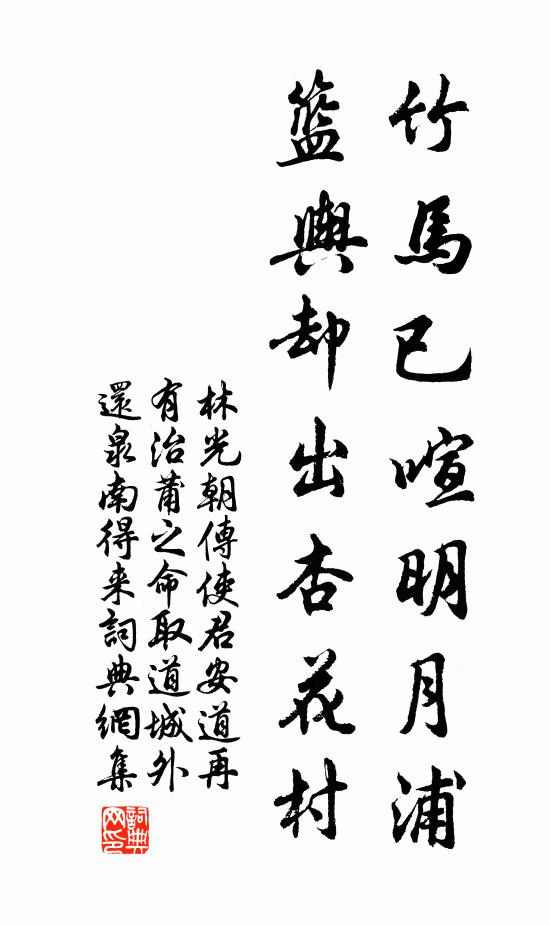 竹馬已喧明月浦
籃輿却出杏花村
林光朝傅使君安道再
有治莆之命取道城外
還泉南得来詞典網集
詞典
网印